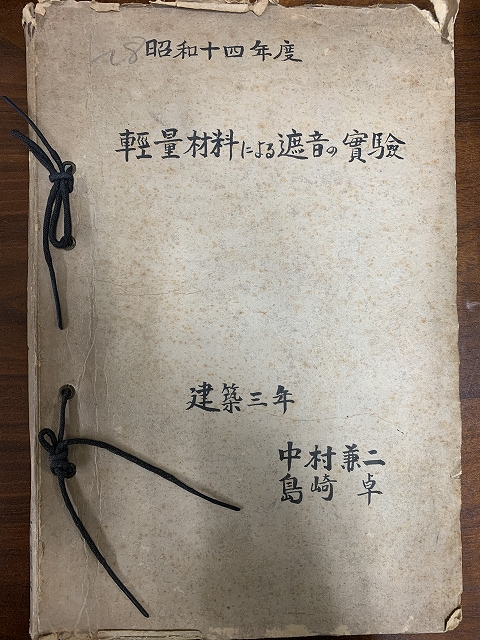 昭和十四年度
輕量材料による遮音の實驗
建築三年
中村兼二
島崎 卓